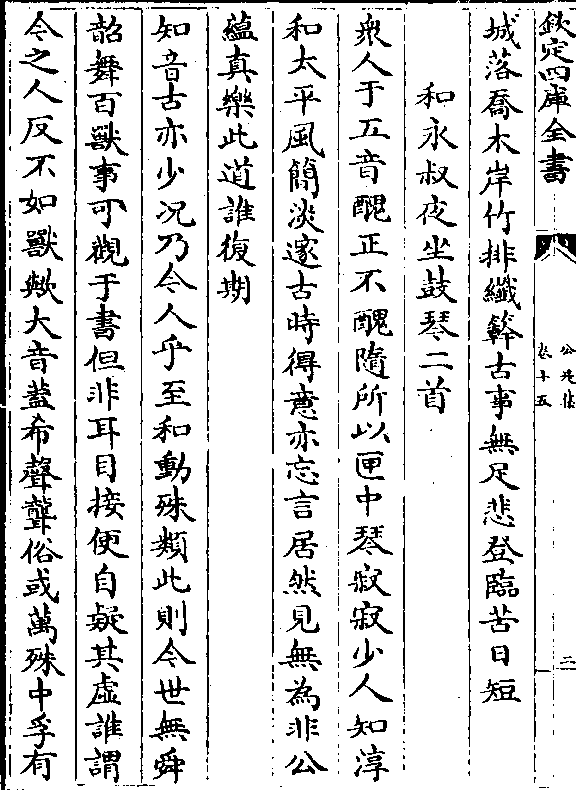 欽定四庫全書
公是集
卷十五
三
城落喬木岸竹排纖簳古事無足悲登臨苦日短
和永叔夜坐鼓琴二首
衆人于五音醜正不醜隨所以匣中琴寂寂少人知淳
和太平風簡淡邃古時得意亦忘言居然見無為非公
蘊真樂此道誰復期
知音古亦少况乃今人乎至和動殊類此則今世無舜
韶舞百獸事可觀于書但非耳目接便自疑其虛誰謂
今之人反不如獸歟大音蓋希聲聾俗或萬殊中孚有